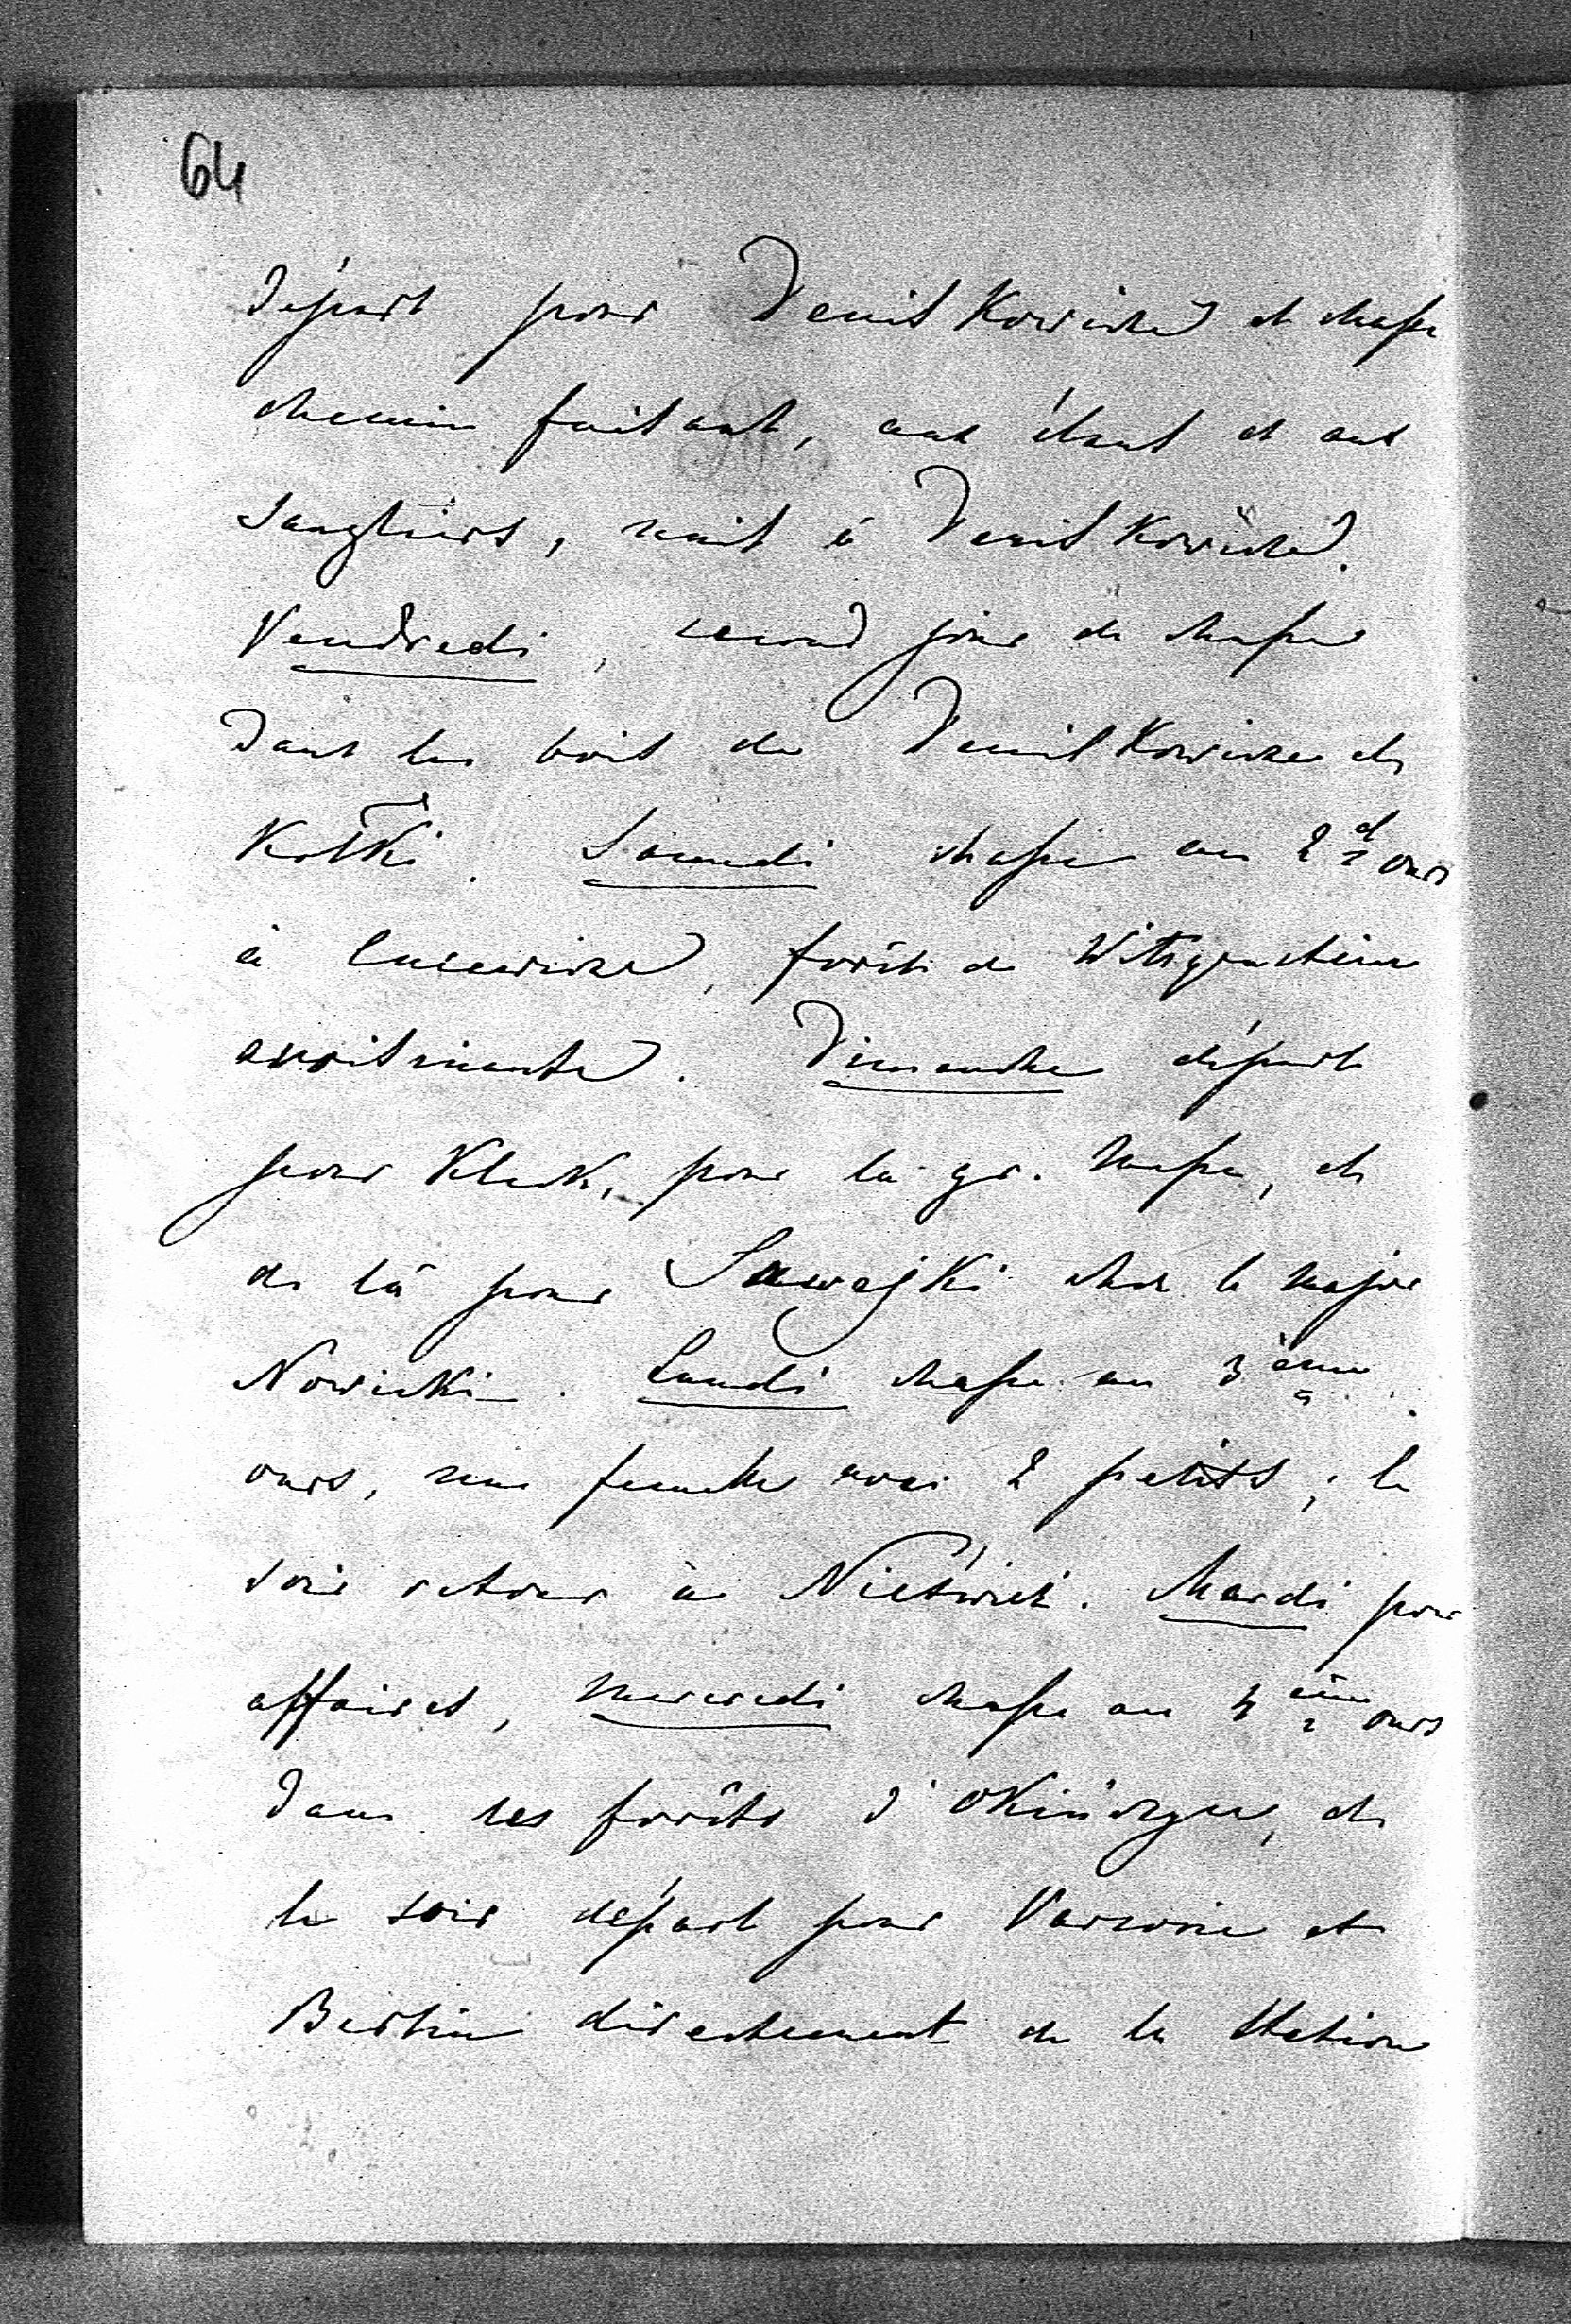 64
Départ pour Deniskowicze et chasse
chemin faisant, aux élans et aux
sangliers, nuit à Deniskowicze.
Vendredi, second jour de chasse
dans les bois de Deniskowicze et
Kolki. Samedi chasse au 2d ours
à , forêt de Wittgenstein
avoisinante. Dimanche départ
pour Kleck, pour la gr. messe, et
de là pour Sawejki chez le major
Nowicki. Lundi chasse au 3ème
ours, une femelle avec 2 petits; le
soir retour à Nieśwież. Mardi pour
affaires, mercredi chasse au 4ème ours
dans les forêts d'Okińczyce, et
le soir départ pour Varsovie et
Berlin directement de la station